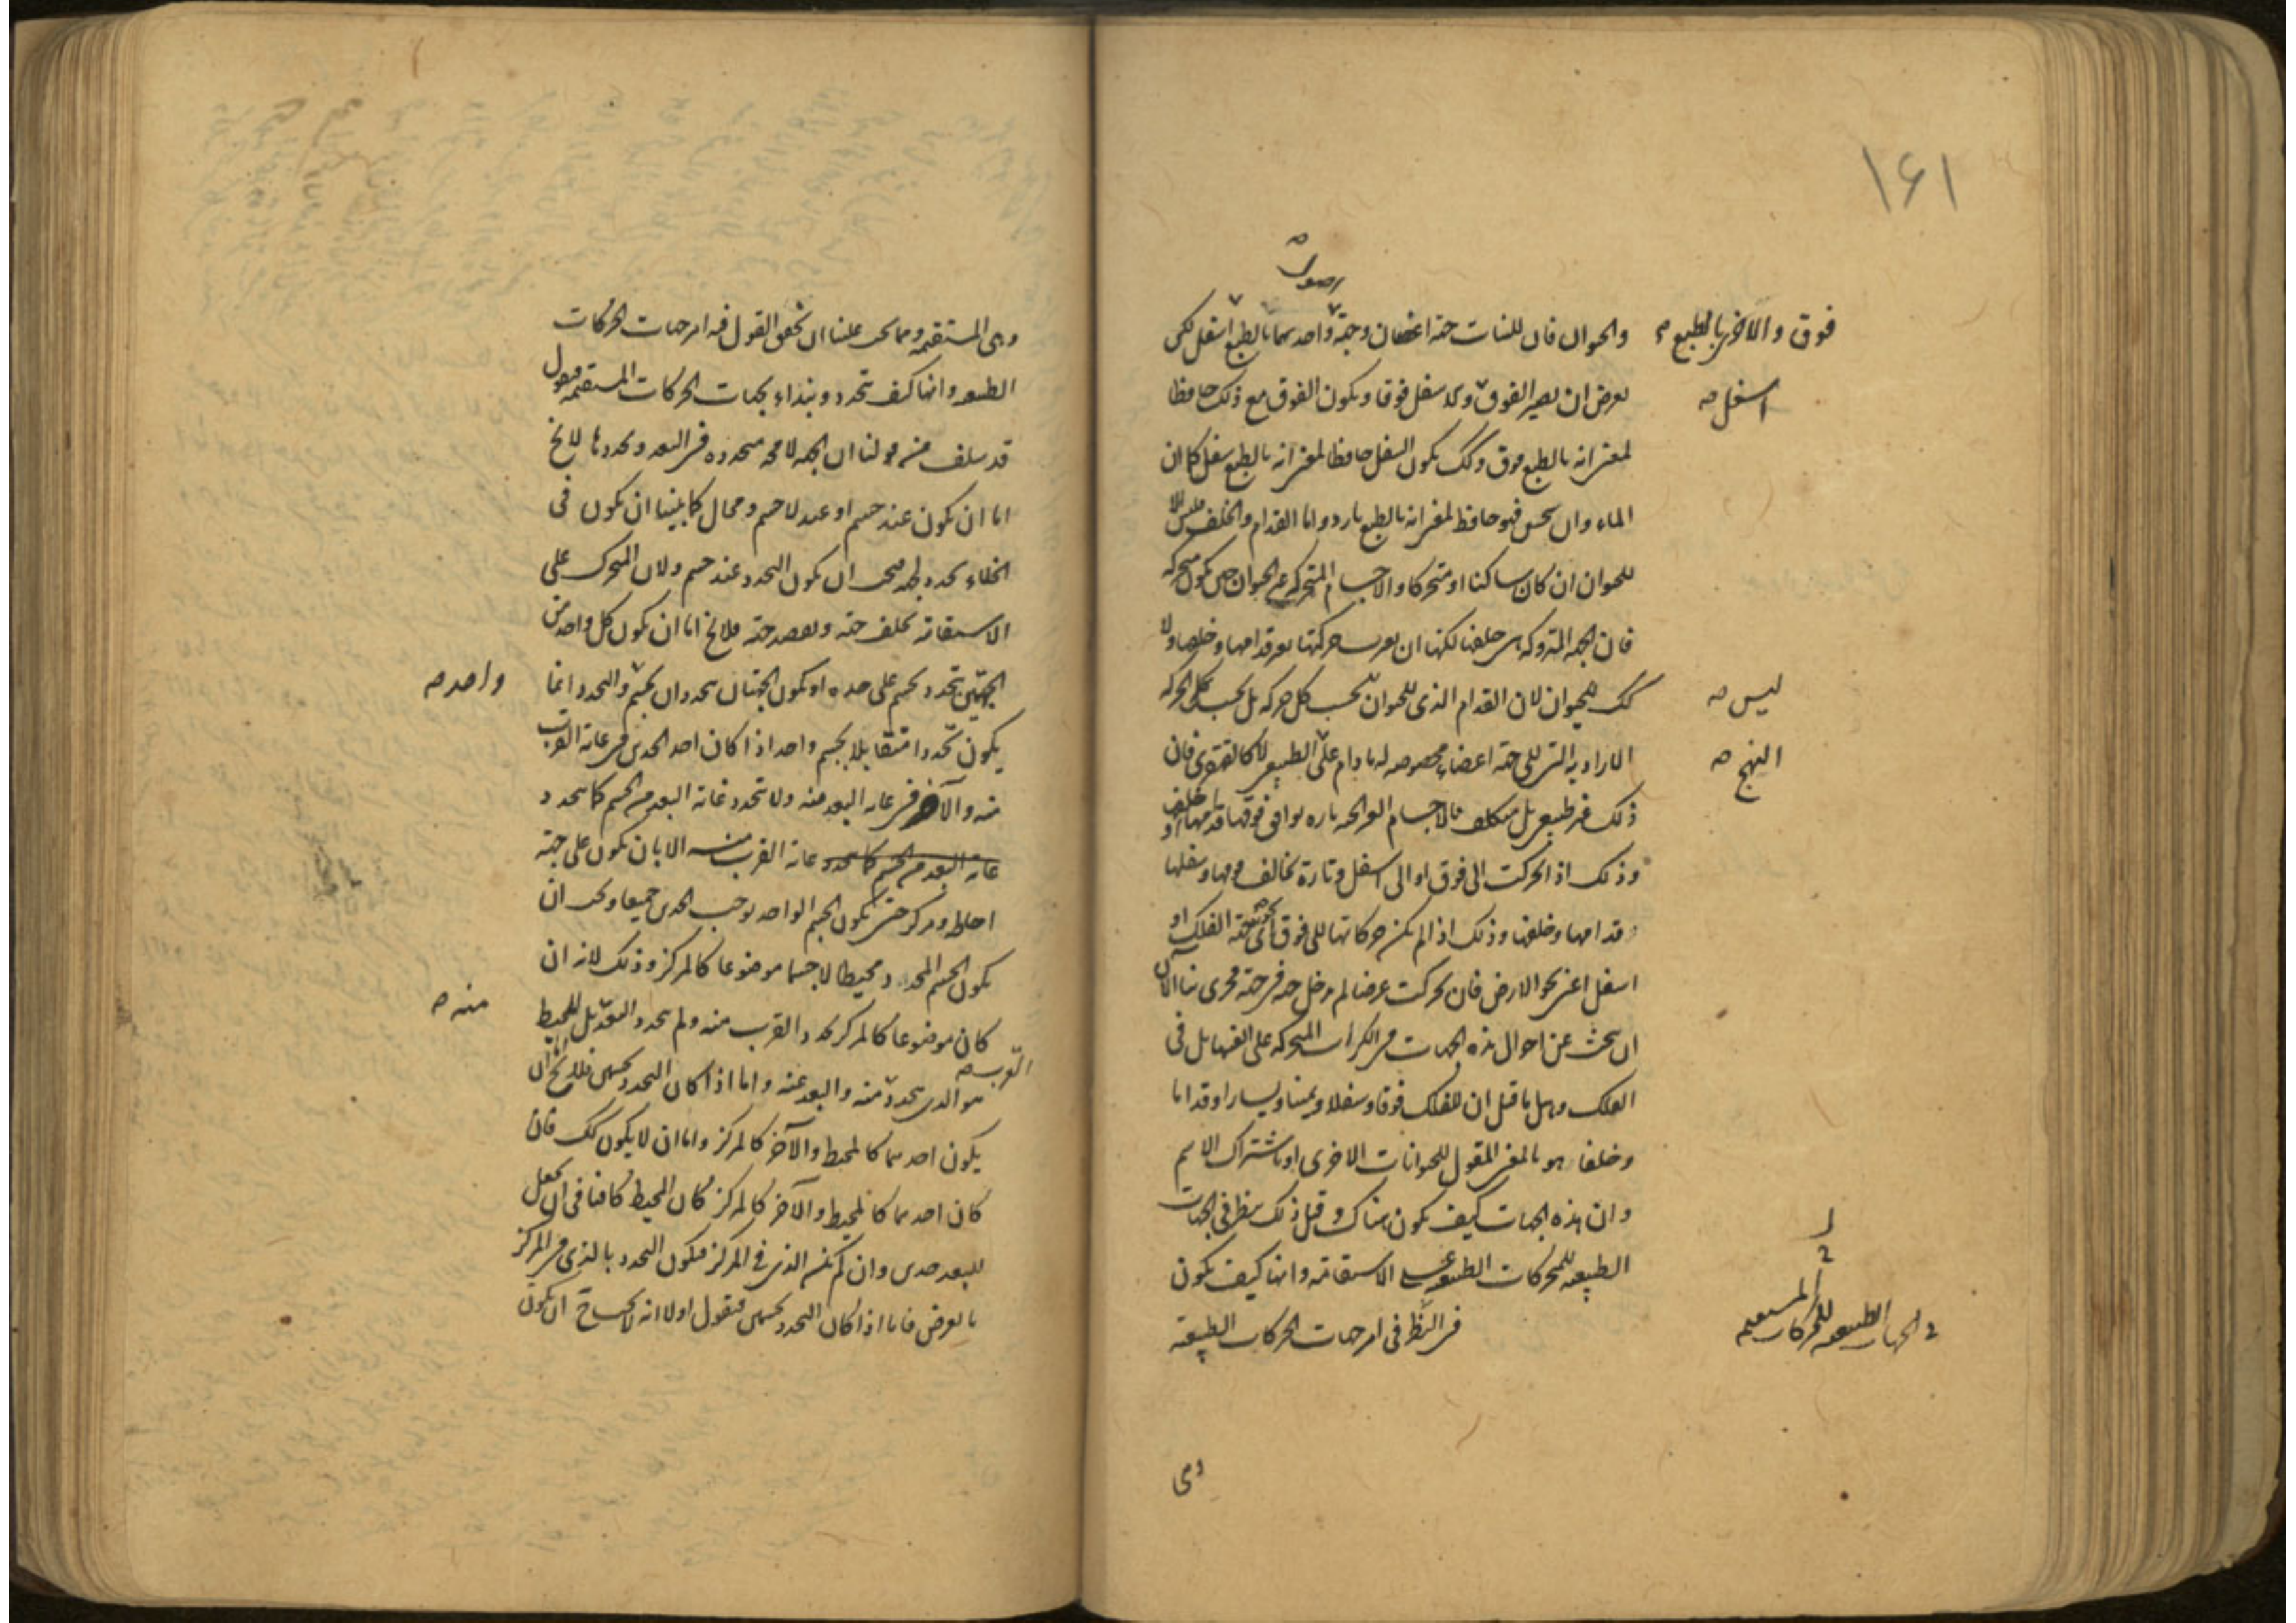 ١٦١
اصول
والحيوان فان للنبات جهة اغصان وجهة واحدهما بالطبع اسفل لكن
فوق والاخرى بالطبع صح
يعرض ان يصير الفوق سفل فوقا ويكون الفوق مع ذلك حافظا
اسفل صح
لمعنى انه بالطبع فوق وكك يكون السفل حافظا لمعنى انه بالطبع سفل كما ان
الماء وان سخن فهو حافظ لمعنى انه بالطبع بارد واما القدام والخلف فليس الا
للحيوان ان كان ساكنا او متحركا والاجسام المتحركة غير الحيوان حين يكون متحركة
فان الجهة المتروكة هى خلفها لكنها ان تغيرت حركتها تغير قدامها وخلفها ولا
كك للحيوان لان القدام الذى للحيوان بحسب كل حركة بل بحسب تلك الحركة
ليس صح
الارادية التى الى جهة اعضاء مخصوصة له ما دام على الطبيعى لا كالقهقرى فان
النهج صح
ذلك غير طبيعى بل متكلف فالاجسام الغير الحية تارة يوافق فوقها قدامها او خلفها
وذلك اذا تحركت الى فوق او الى اسفل وتارة يخالف فوقها وسفلها
قدامها وخلفها وذلك اذا لم يكن حركاتها الى فوق اى جهة الفلك او
اسفل اعنى نحو الارض فان تحركت عرضا لم يدخل جهة فى جهة فحرى بنا الآن
ان نبحث عن احوال هذه الجهات فى الكرات المتحركة على انفسها بل فى
الفلك وهل ما قيل ان للفلك فوقا وسفلا ويمينا ويسارا وقداما
وخلفا هو بالمعنى المقول للحيوانات الاخرى او باشتراك الاسم
وان هذه الجهات كيف يكون هناك وقبل ذلك ننظر فى الجهات
الطبيعية للحركات الطبيعية على الاستقامة وانها كيف يكون
فى النظر فى امر جهات الحركات الطبيعية
فى الجهات الطبيعية للحركات المستقيمة
وهى
وهى المستقيمة ومما يجب علينا ان نحقق القول فيه امر جهات الحركات
الطبيعية وانها كيف تتحدد ونبتداء بجهات الحركات المستقيمة فنقول
قد سلف من قولنا ان الجهة لا محة متحددة فى البعد وتحددها لا يخ
اما ان يكون عند جسم او عند لا جسم ومحال كما بينا ان يكون فى
الخلاء تحدد جهة فيجب ان يكون التحدد عند جسم ولان المتحرك على
الاستقامة يخلف جهة ويقصد جهة فلا يخ اما ان يكون كل واحد من
الجهتين تتحدد بجسم على حدة او يكون الجهتان تتحددان بجسم والتحدد انما
واحد صح
يكون تحددا متقابلا بجسم واحد اذا كان احد الحدين فى غاية القرب
منه والآخر فى غاية البعد منه ولا تتحدد غاية البعد من الجسم كما تتحدد
غاية البعد من الجسم كما تتحدد غاية القرب منه الا بان يكون على جهة
احاطة ومركز حتى يكون الجسم الواحد يوجب الحدين جميعا ويجب ان
يكون الجسم المحدد محيطا لا جسما موضوعا كالمركز وذلك لانه ان
كان موضوعا كالمركز تحدد القرب منه ولم يتحدد البعد بل المحيط
منه صح
هو الذى يتحدد منه والبعد عنه واما اذا كان التحدد بجسمين فلا يخ اما ان
القرب صح
يكون احدهما كالمحيط والآخر كالمركز واما ان لا يكون كك فان
كان احدهما كالمحيط والآخر كالمركز كان المحيط كافيا فى ان يجعل
للبعد حدين وان لم يكن الذى فى المركز فيكون التحدد بالذى فى المركز
بالعرض فاما اذا كان التحدد بجسمين فنقول اولا انه لا ان يكون